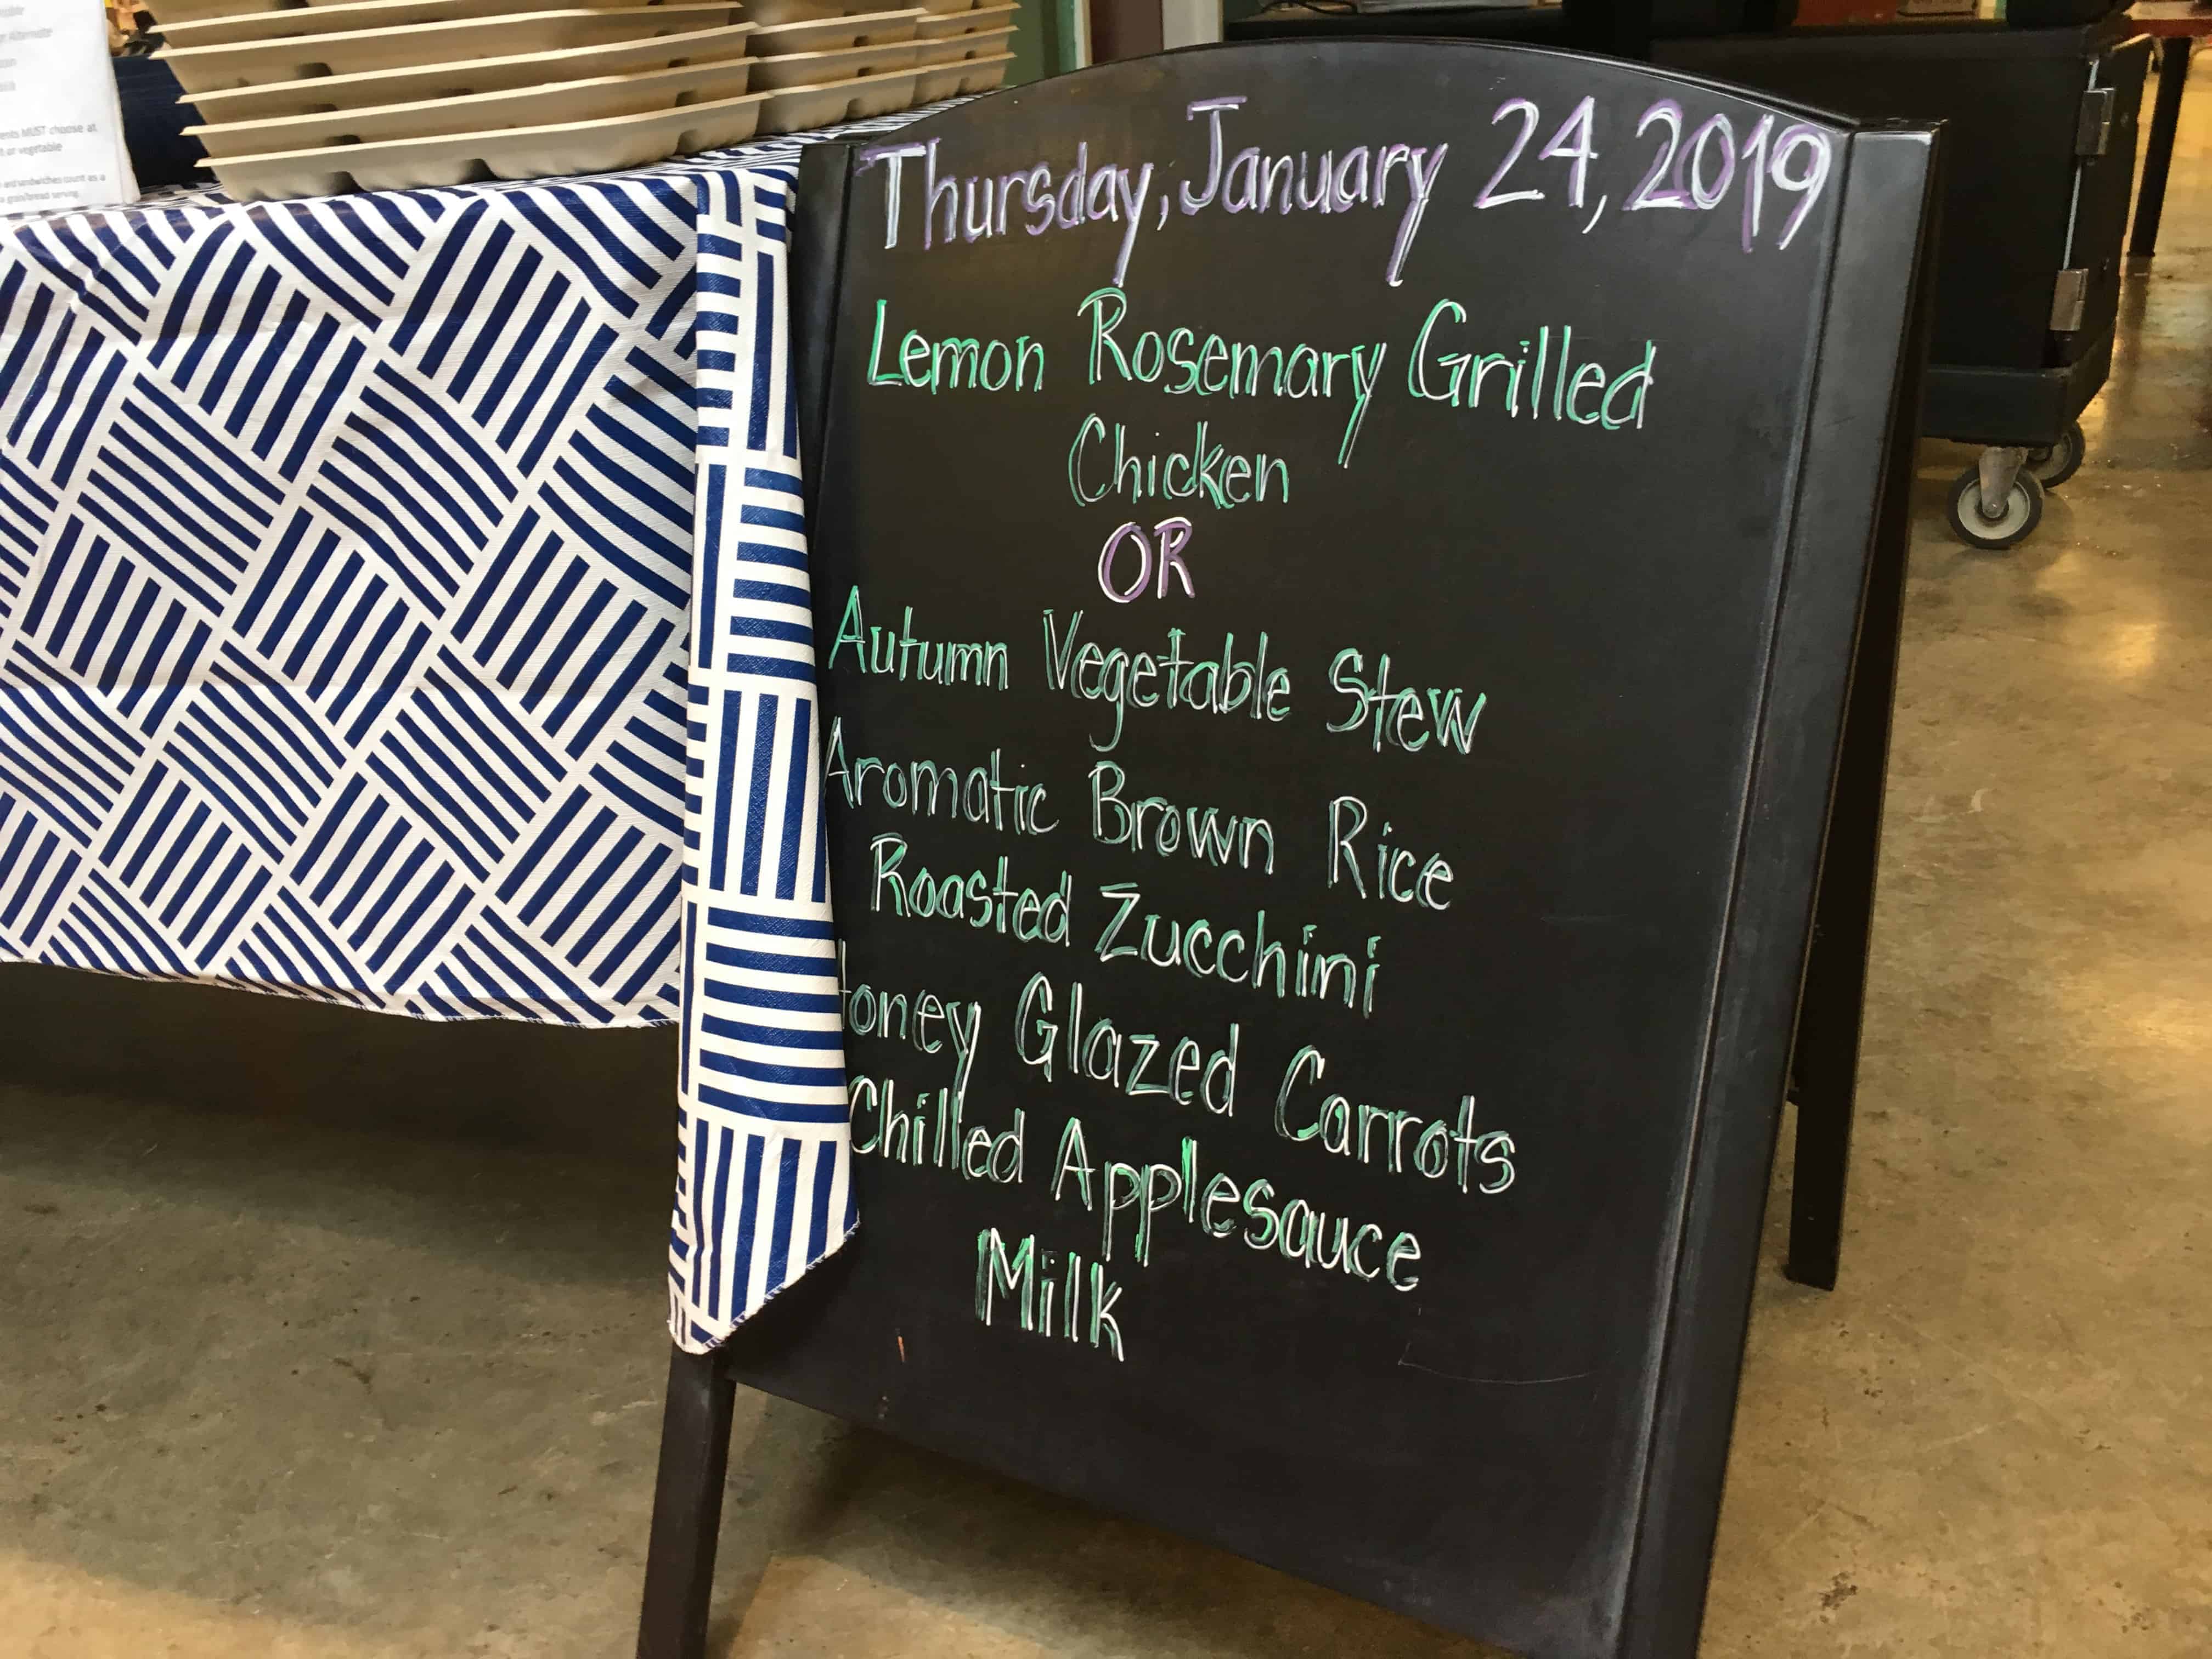 ents MUST choose at
t or vegetable
and sandwiches count as a
a grain/bread serving
Thursday, January 24, 2019
Lemon Rosemary Grilled
Chicken
OR
Autumn Vegetable Stew
Aromatic Brown Rice
Roasted Zucchini
Honey Glazed Carrots
Chilled Applesauce
Milk